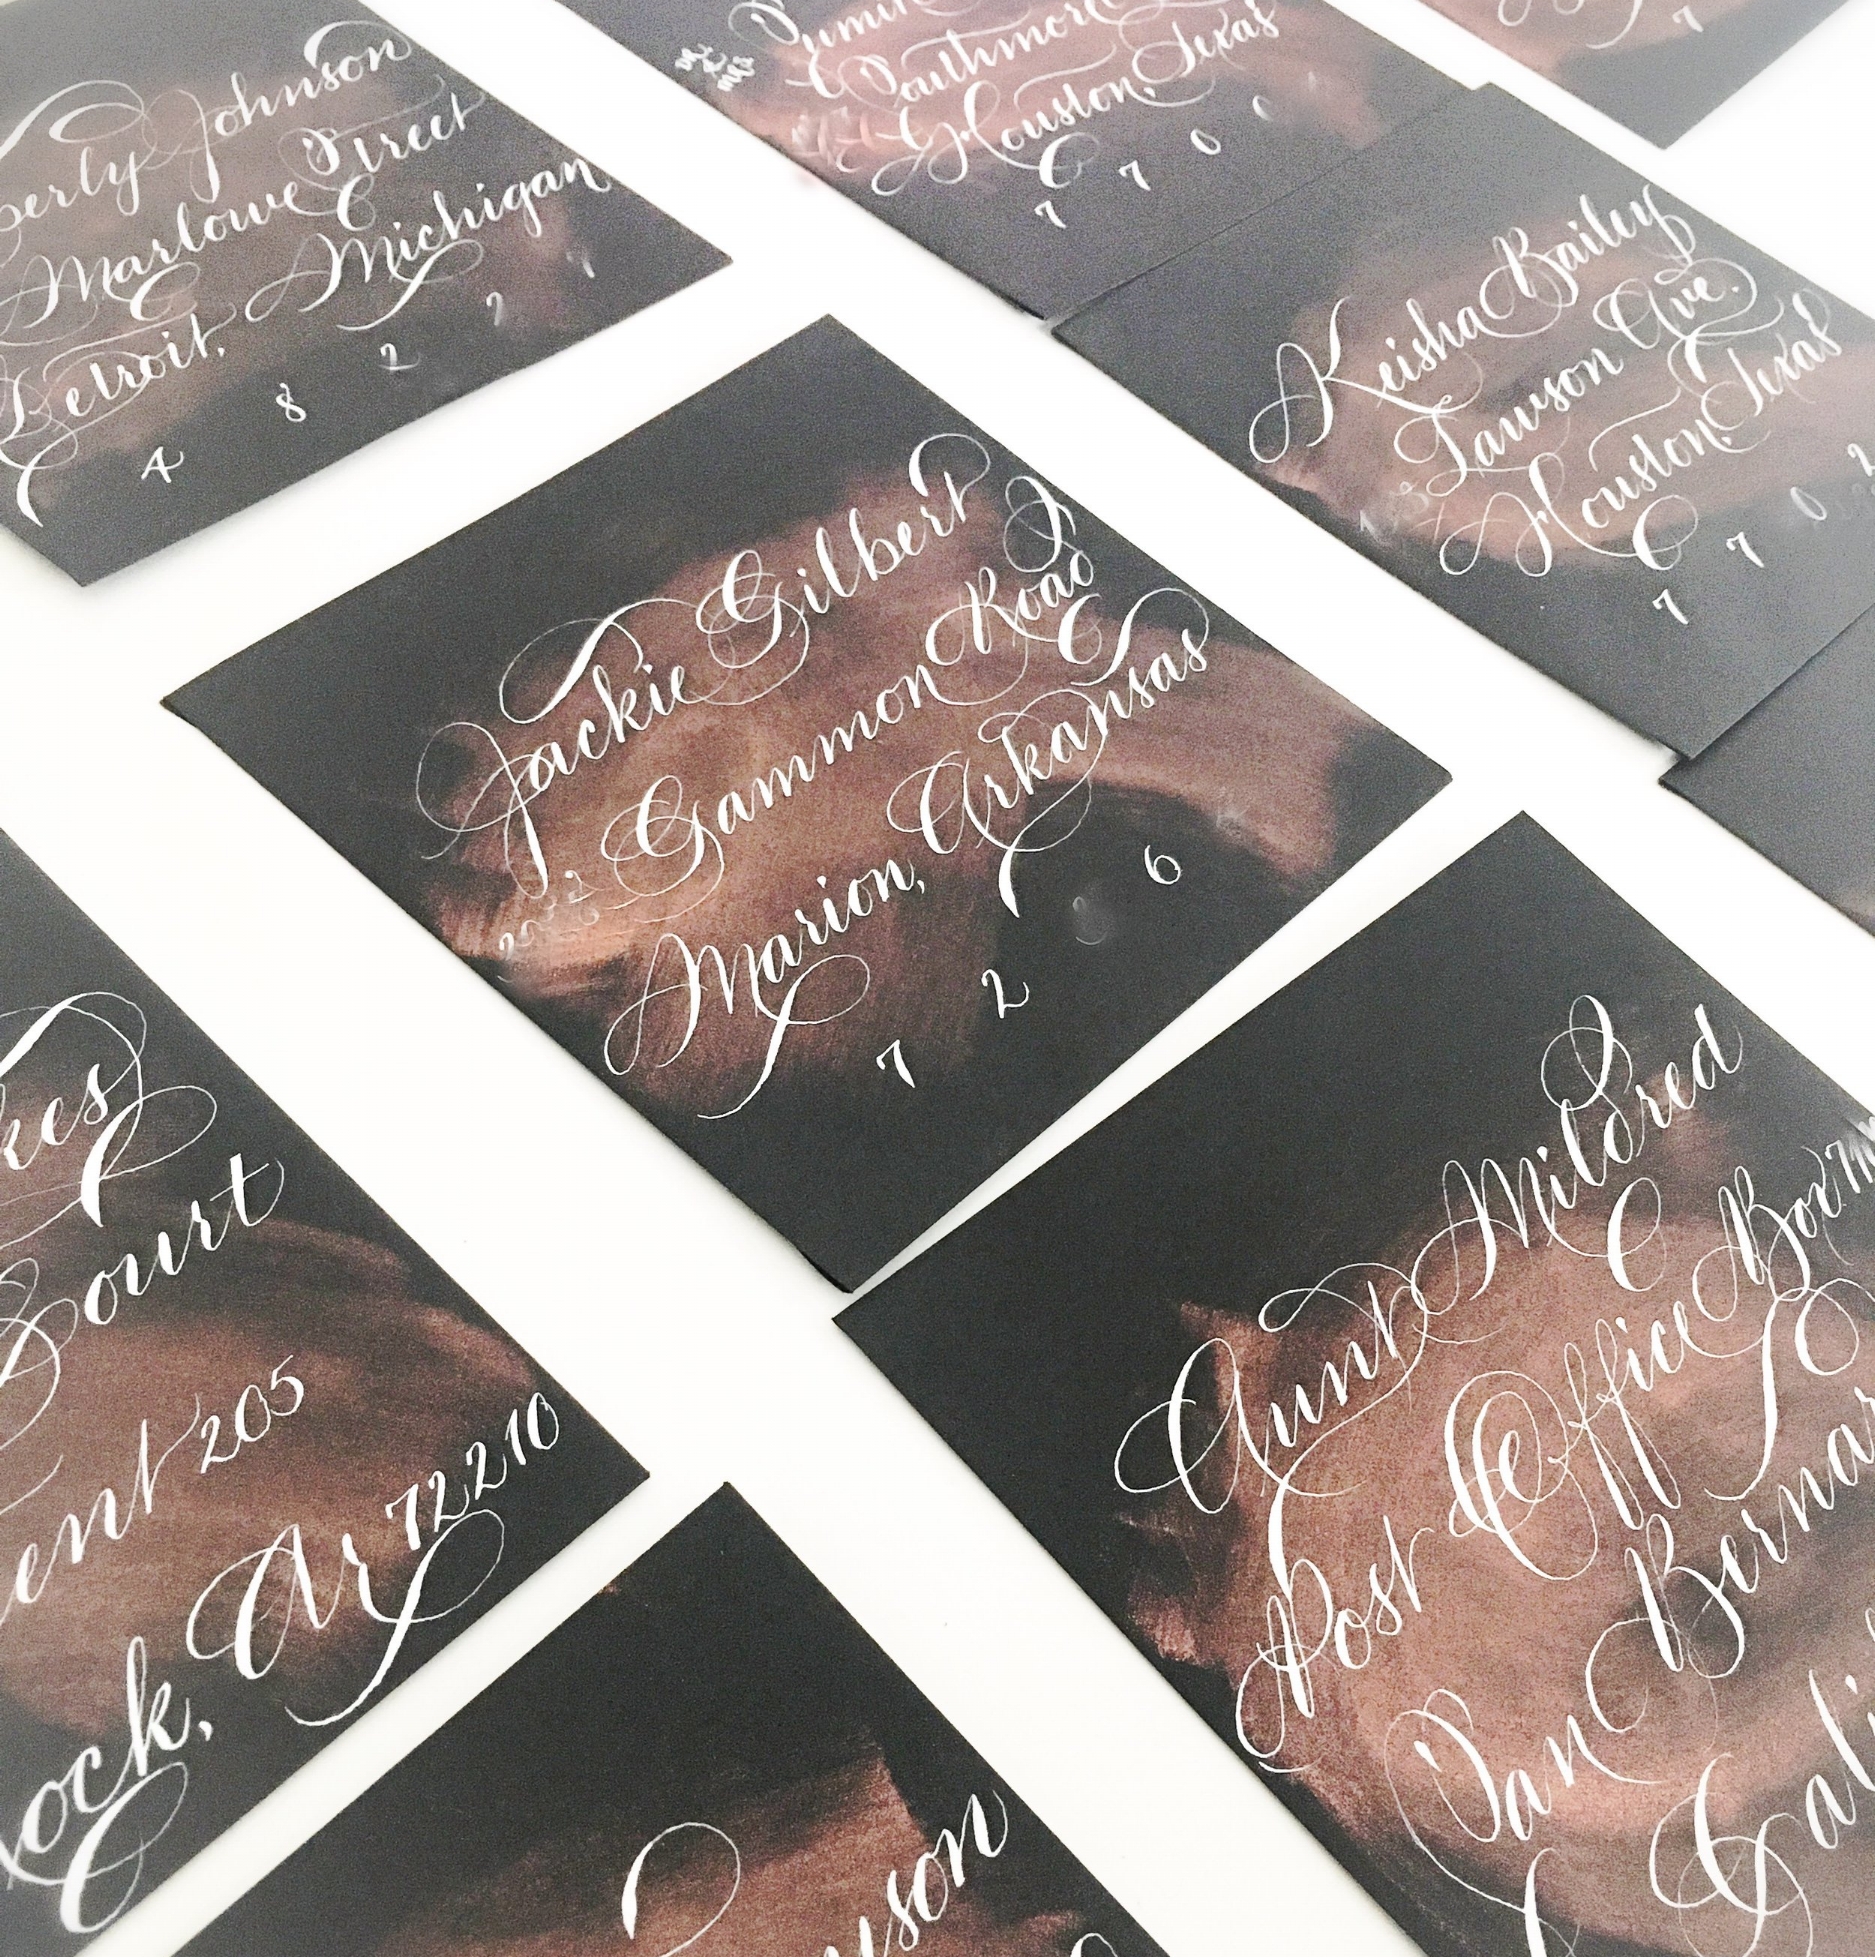 erly Johnson
Marlowe Street
Detroit, Michigan
4 8 2 2 1
Southmore
Houston, Texas
7 7 0
7
Keisha Bailey
Lawson Ave.
Houston, Texas
7 7 0 2
Jackie Gilbert
Gammon Road
Marion, Arkansas
7 2 6
kes
Court
ent 205
ock, Ar 72210
Aunt Mildred
Post Office Box
San Bernar
Cali
son